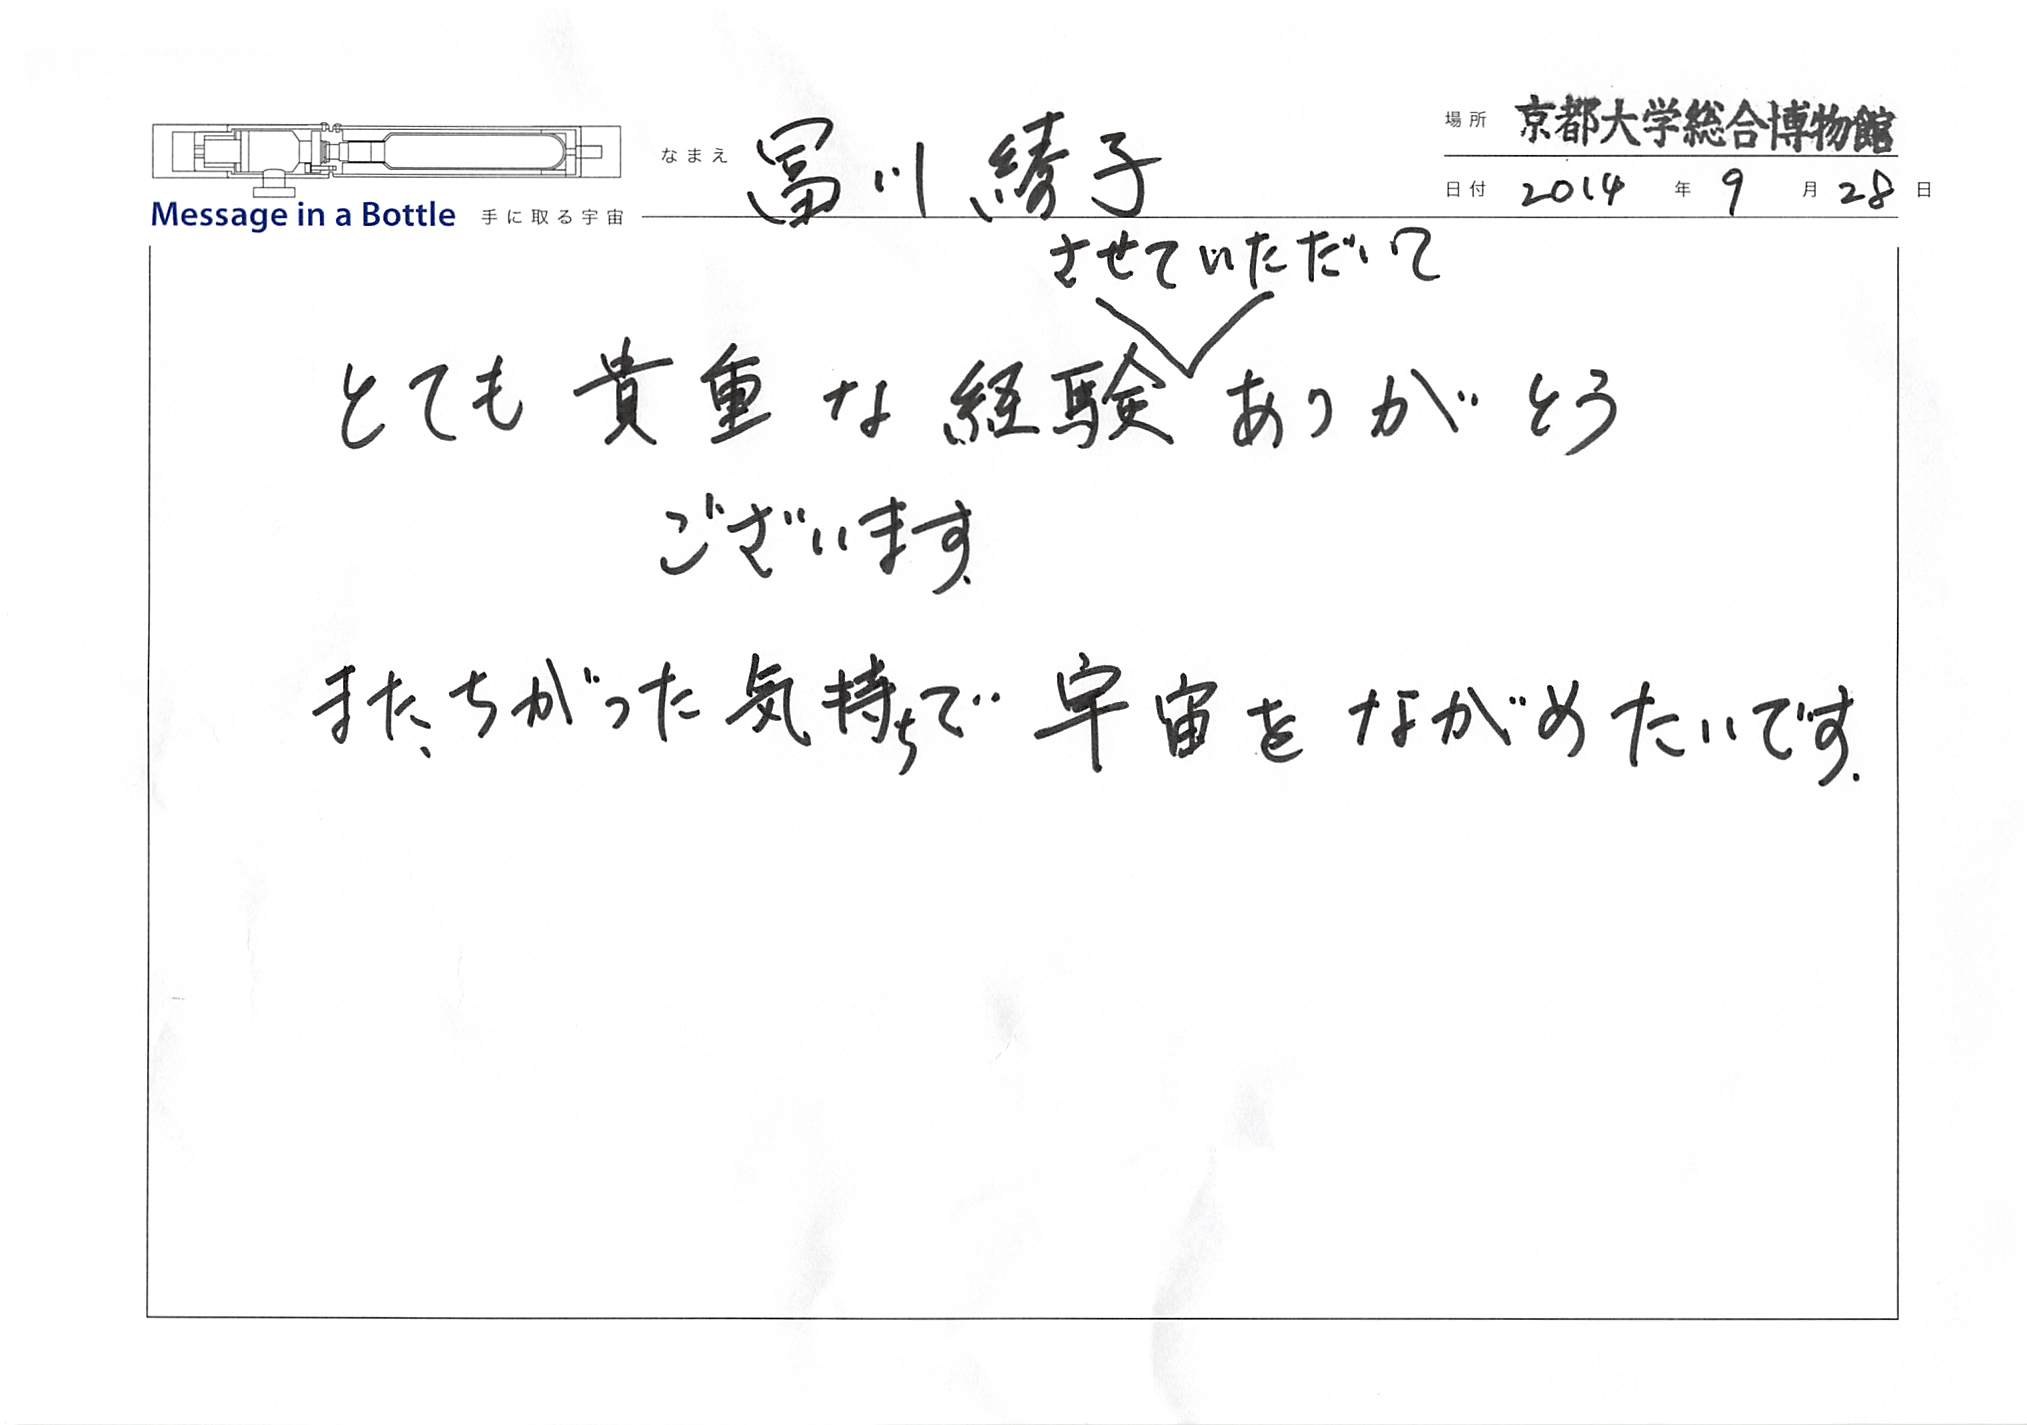 Message in a Bottle 手に取る宇宙
なまえ 冨川 綾子
場所 京都大学総合博物館
日付 2014 年 9 月 28 日
させていただいて
とても 貴重 な 経験 ありがとう
ございます.
また、ちがった気持ちで 宇宙を ながめたいです.